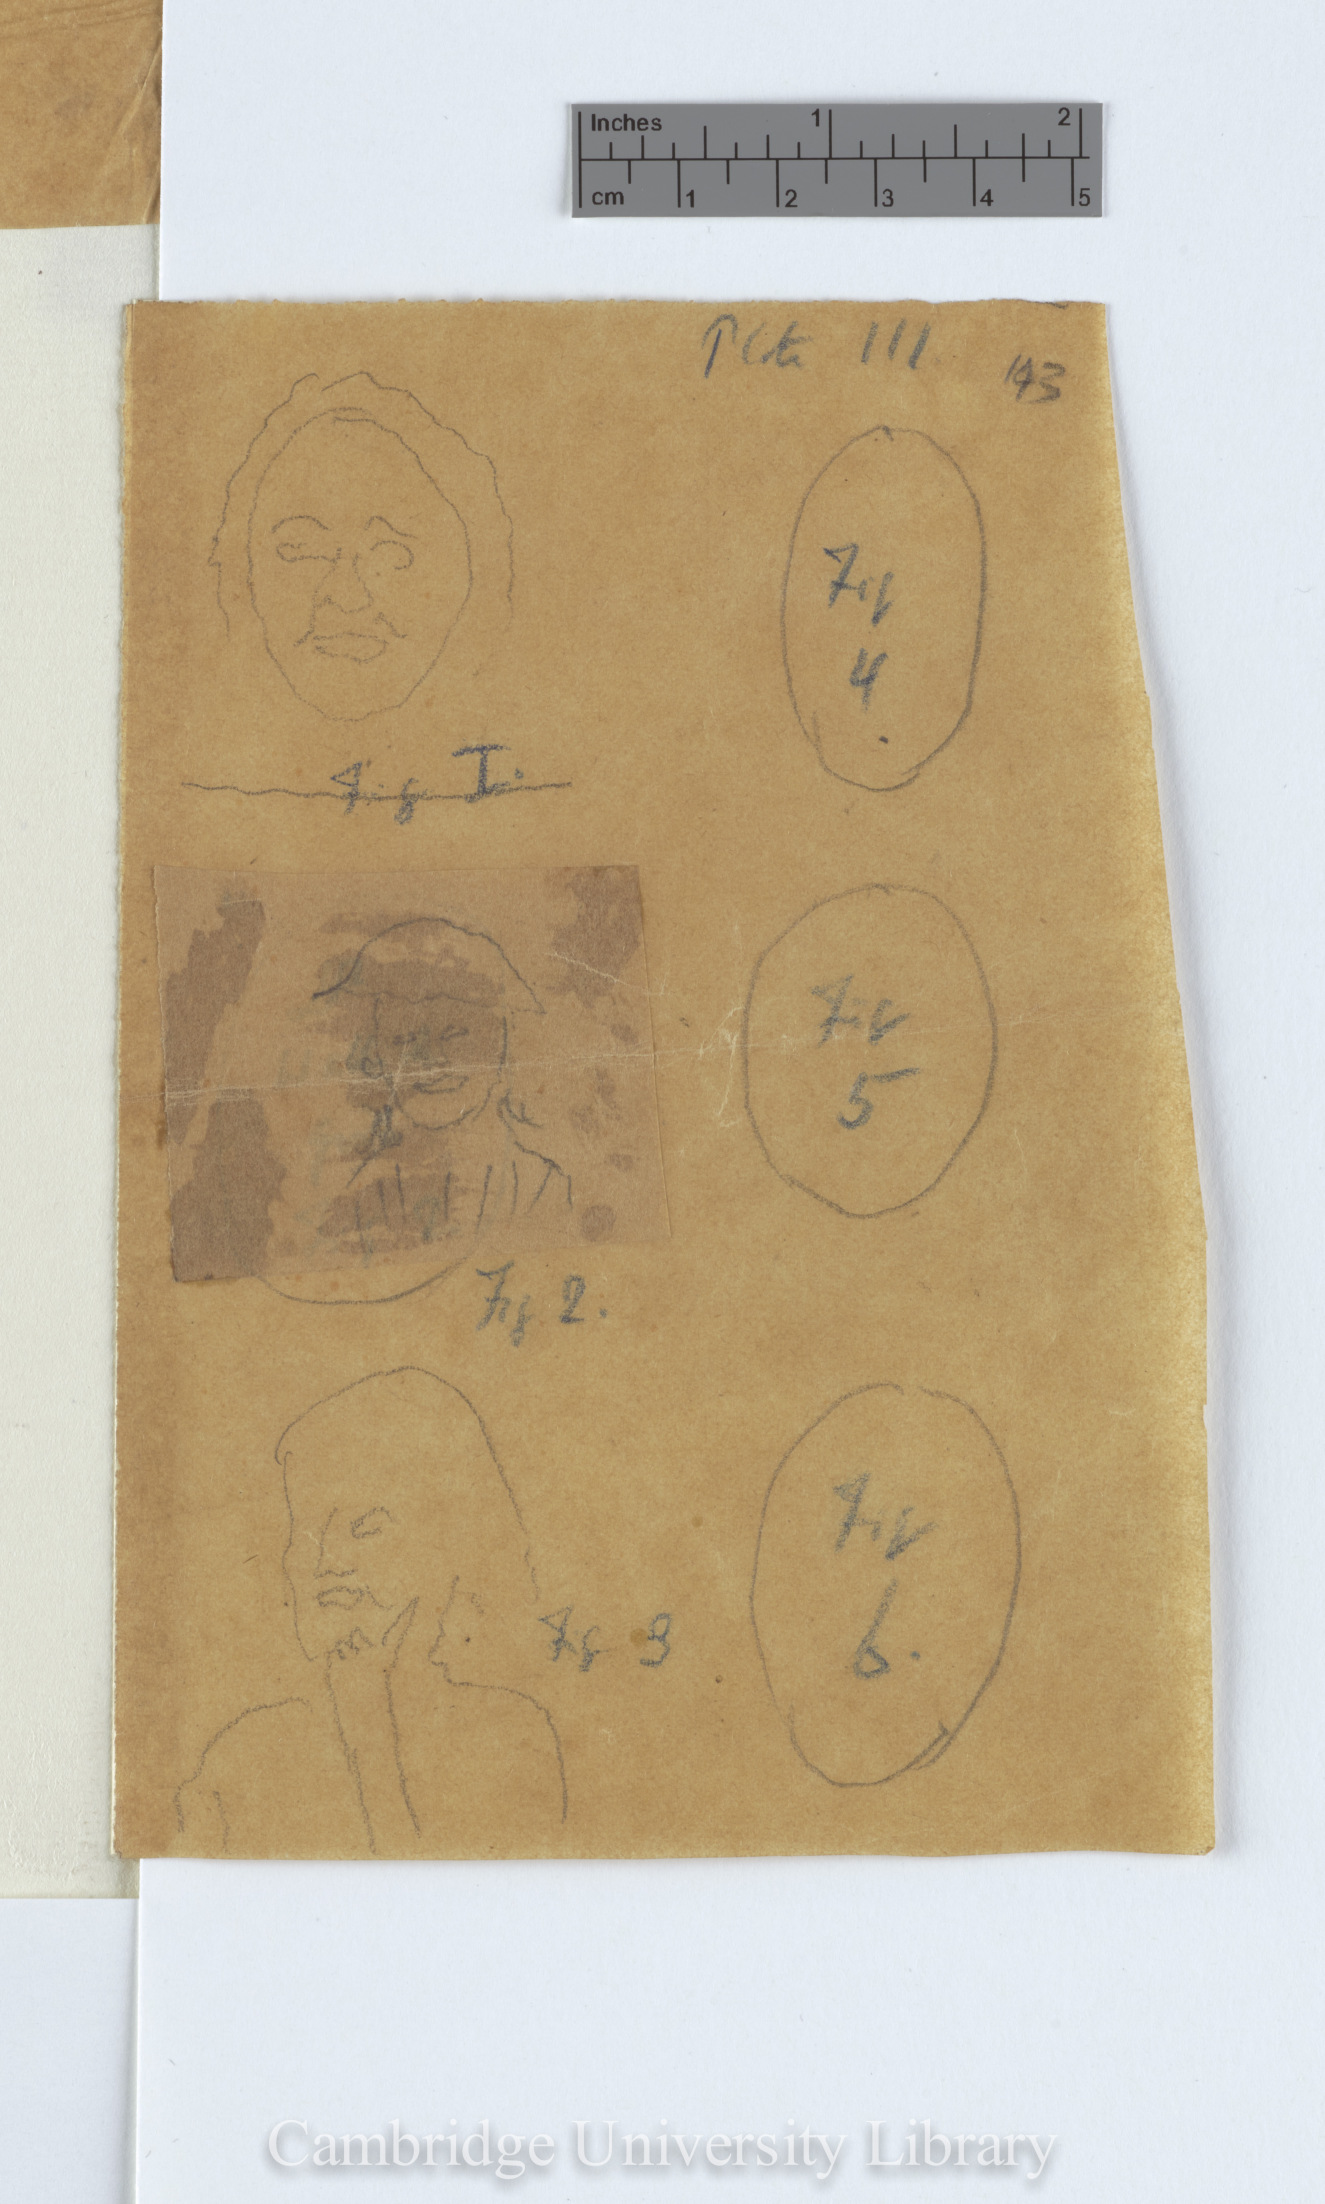 Inches 1 2
cm 1 2 3 4 5
Plate III
143
Fig I.
Fig 4.
Fig 2.
Fig 5
Fig 3
Fig 6.
Cambridge University Library